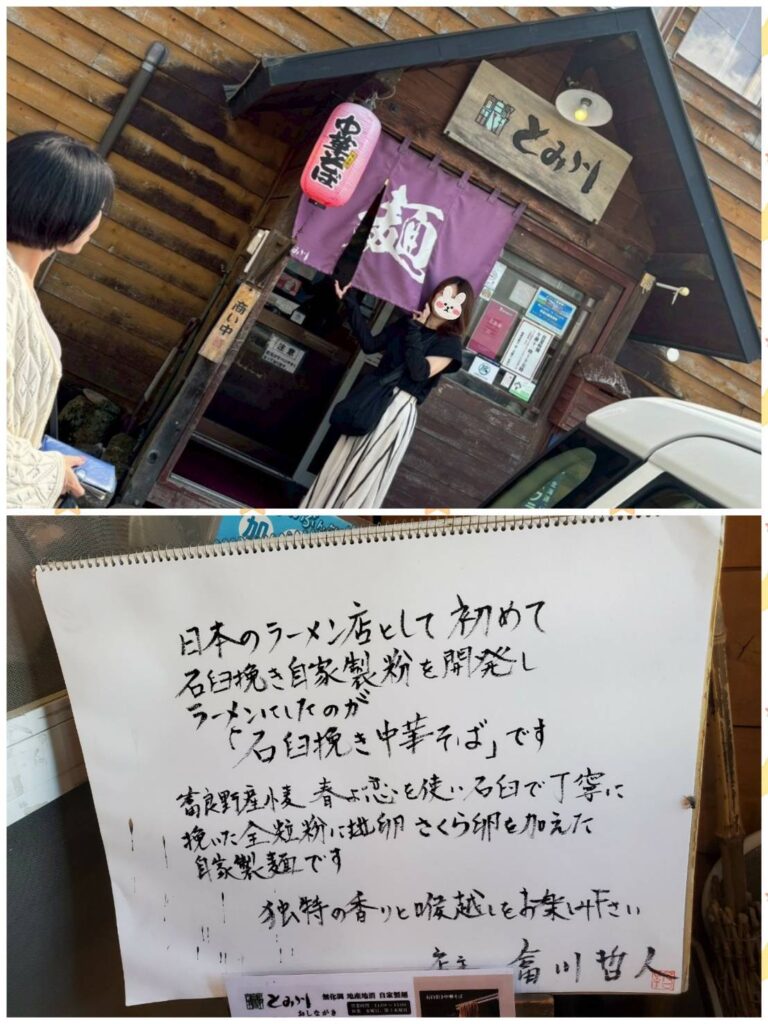 とみ川
中華そば
麺
商い中
注意
加
日本のラーメン店として初めて
石臼挽き自家製粉を開発し
ラーメンにしたのが
「石臼挽き中華そば」です
富良野産小麦 春よ恋を使い石臼で丁寧に
挽いた全粒粉に地卵 さくら卵を加えた
自家製麺です
独特の香りと喉越しをお楽しみ下さい
店主 富川哲人
とみ川 無化調 地産地消 自家製麺
おしながき